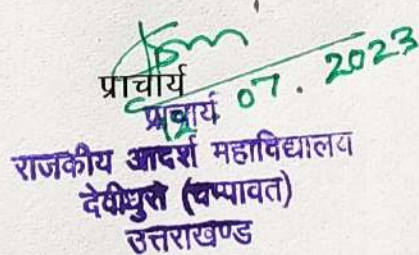 प्राचार्य
07. 2023
प्राचार्य
राजकीय आदर्श महाविद्यालय
देवीधुरा (चम्पावत)
उत्तराखण्ड